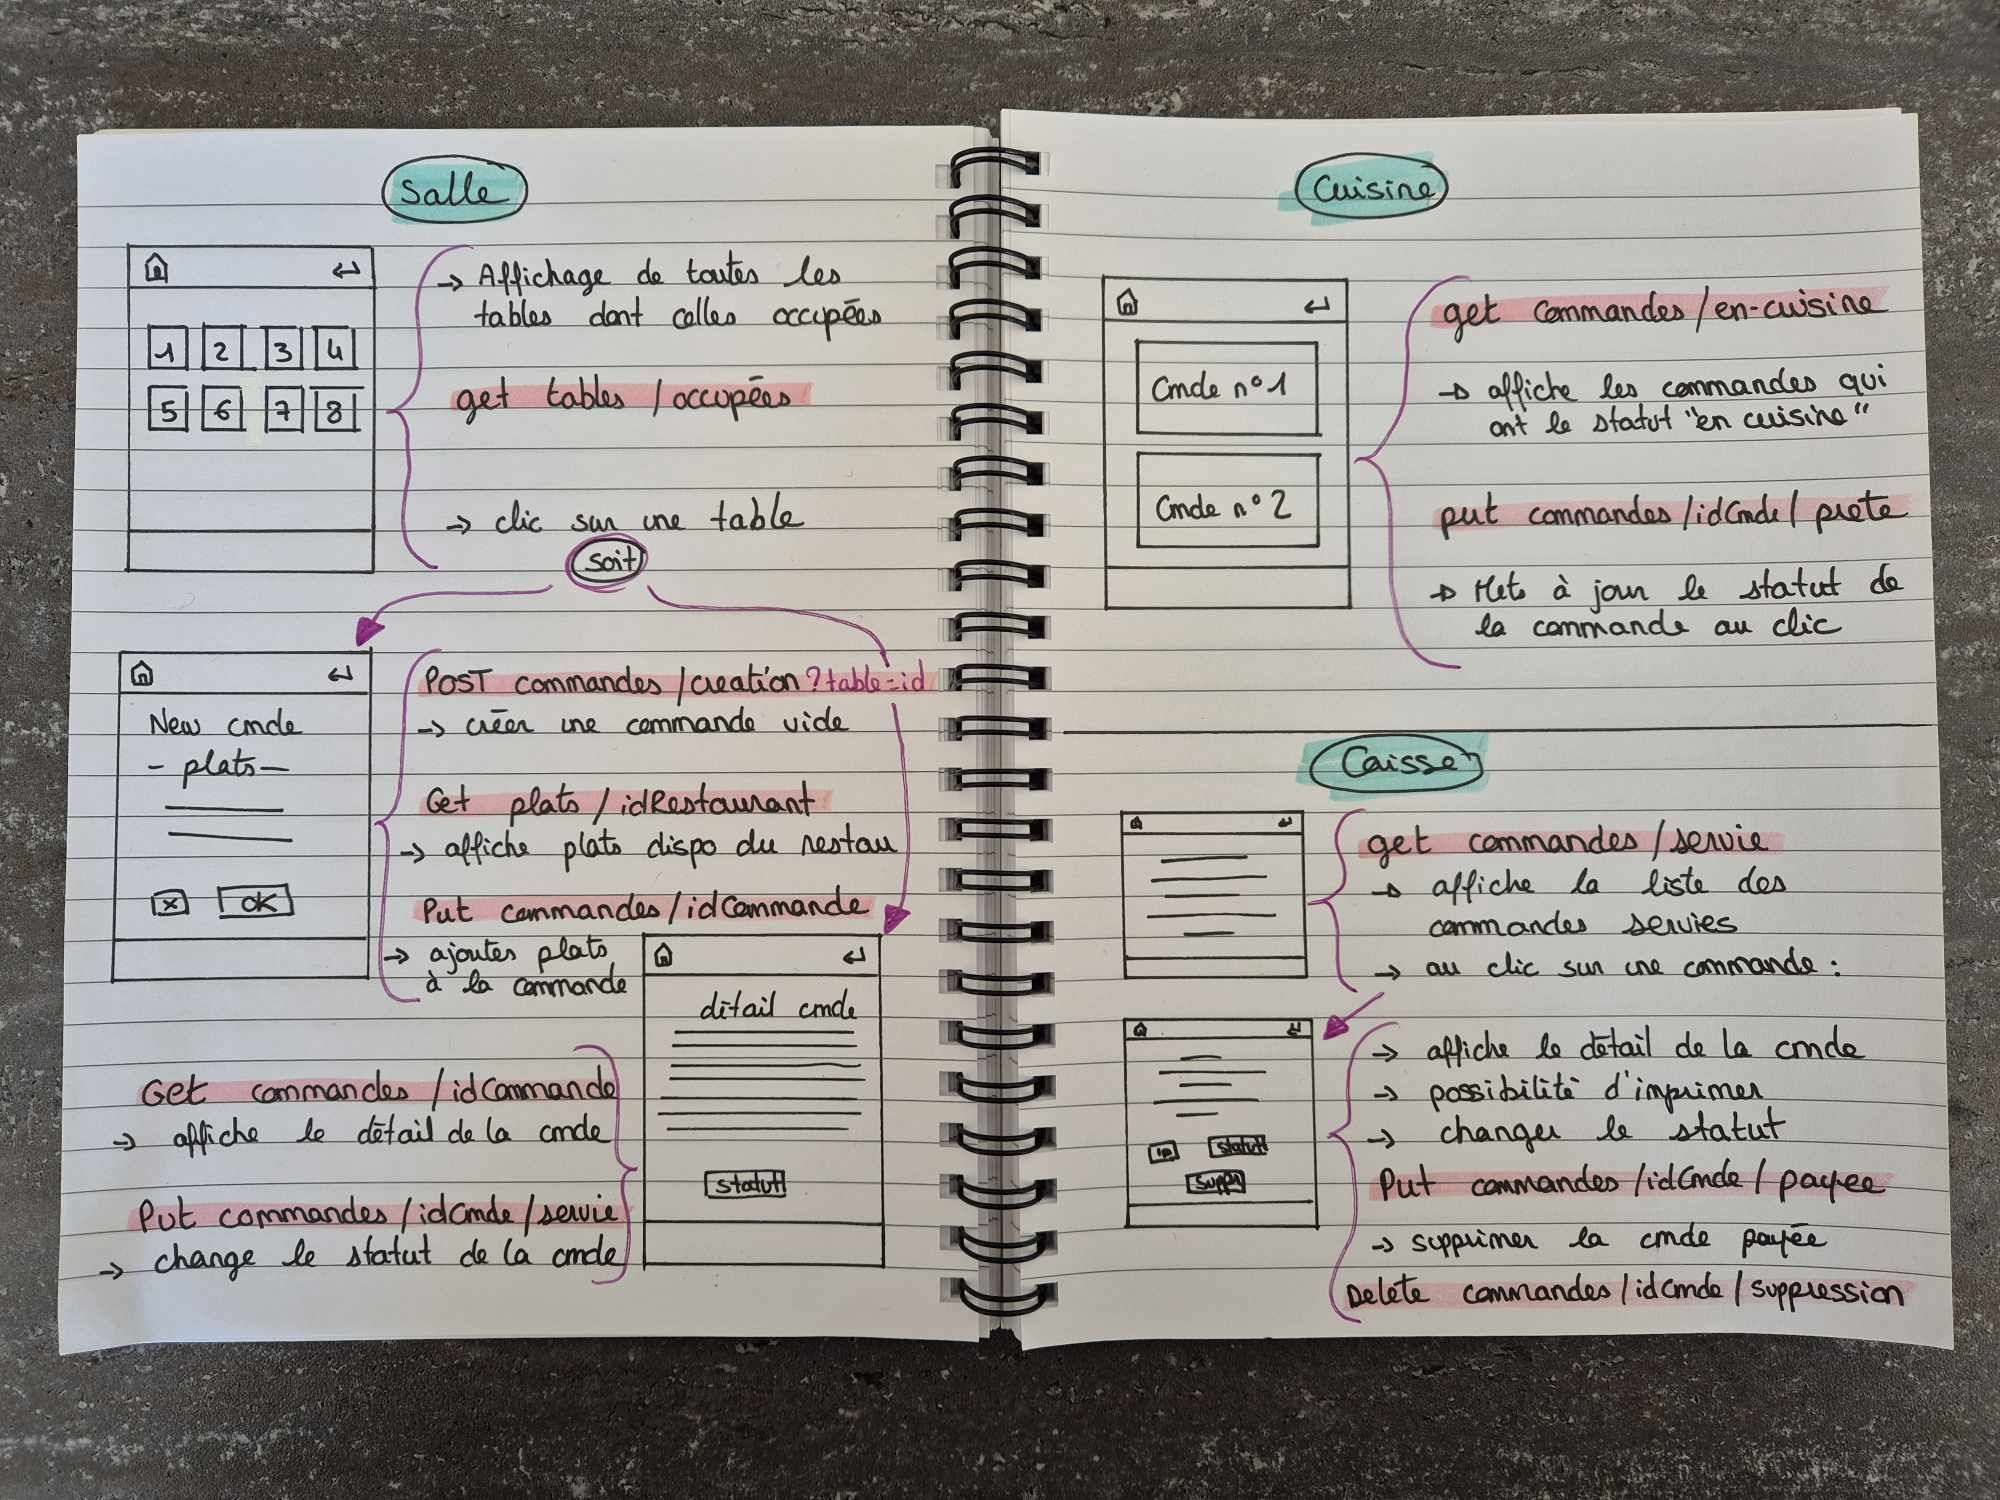 Salle
1 2 3 4
5 6 7 8
→ Affichage de toutes les
tables dont celles occupées
get tables / occupées
→ clic sur une table
soit
New cmde
- plats -
x OK
POST commandes / creation ?table=id
→ créer une commande vide
Get plats / idRestaurant
→ affiche plats dispo du restau
Put commandes / idCommande
→ ajoutes plats
à la commande
détail cmde
statut
Get commandes / idCommande
→ affiche le détail de la cmde
Put commandes / idCmde / servie
→ change le statut de la cmde
Cuisine
Cmde n°1
Cmde n°2
get commandes / en-cuisine
→ affiche les commandes qui
ont le statut "en cuisine"
put commandes / idCmde / prete
→ Mets à jour le statut de
la commande au clic
Caisse
get commandes / servie
→ affiche la liste des
commandes servies
→ au clic sur une commande :
statut
suppr
→ affiche le détail de la cmde
→ possibilité d'imprimer
→ changer le statut
Put commandes / idCmde / payee
→ supprimer la cmde payée
Delete commandes / idCmde / suppression